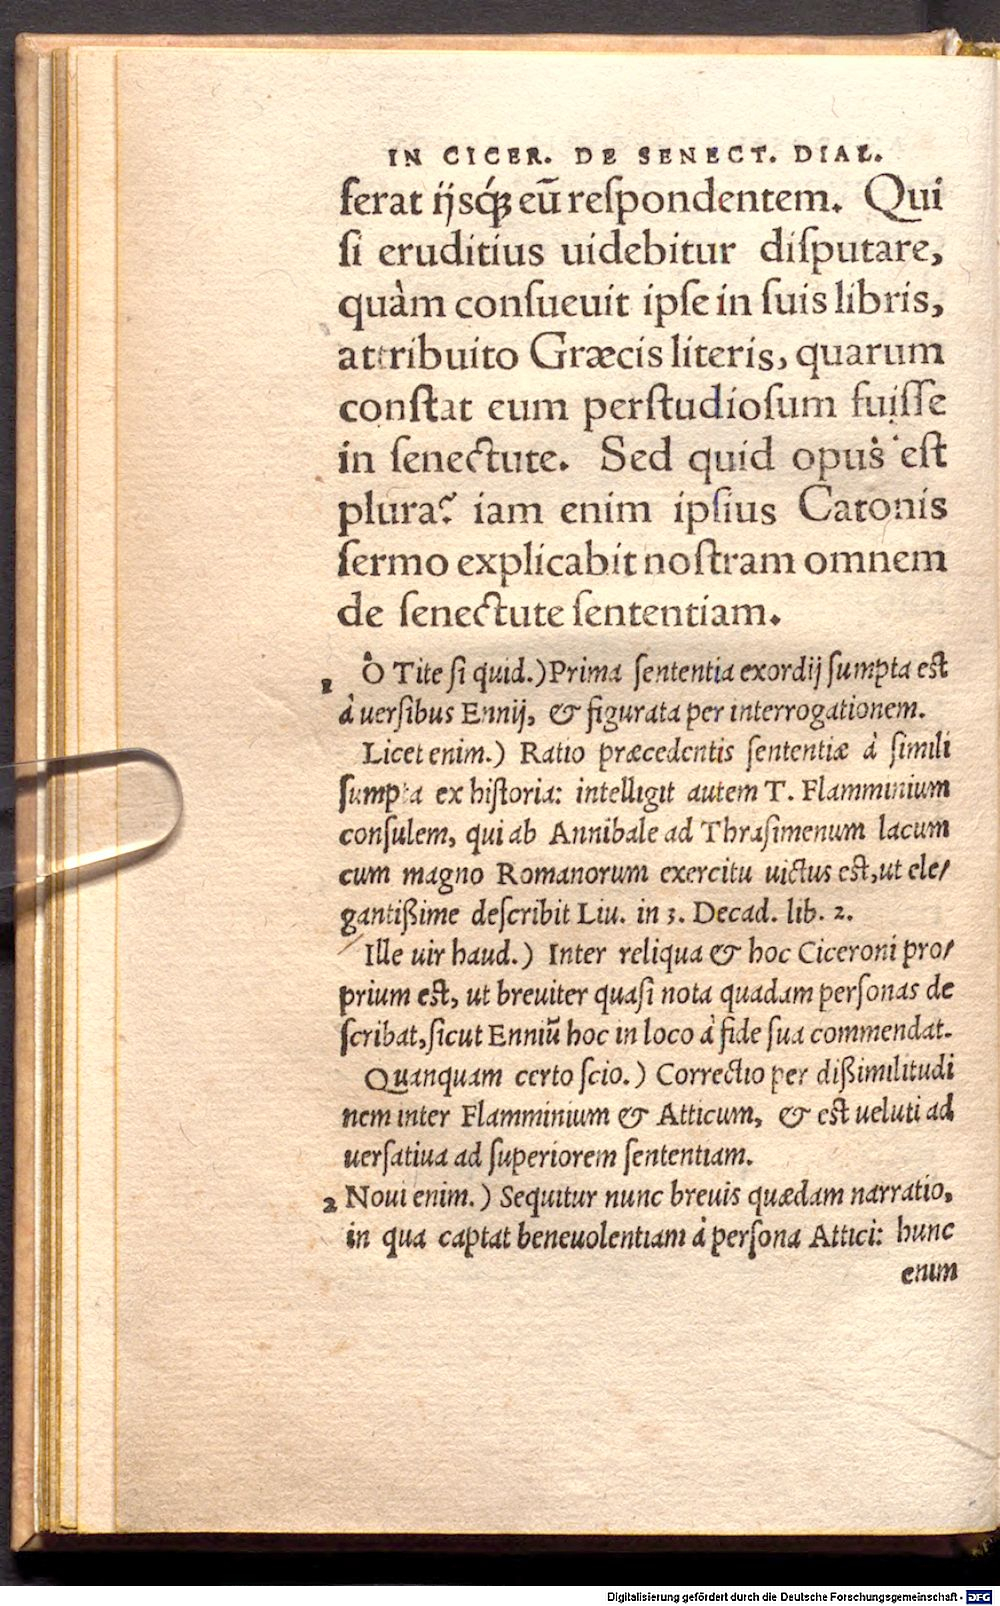 IN CICER. DE SENECT. DIAL.
ferat ijsq́ꝫ eū reſpondentem. Qui
ſi eruditius uidebitur diſputare,
quàm conſueuit ipſe in ſuis libris,
attribuito Græcis literis, quarum
conſtat eum perſtudioſum fuiſſe
in ſenectute. Sed quid opus est
plura? iam enim ipſius Catonis
ſermo explicabit noſtram omnem
de ſenectute ſententiam.
1 Ô Tite ſi quid.) Prima ſententia exordij ſumpta est
à uerſibus Ennij, & figurata per interrogationem.
Licet enim.) Ratio præcedentis ſententiæ à ſimili
ſumpta ex hiſtoria: intelligit autem T. Flamminium
conſulem, qui ab Annibale ad Thraſimenum lacum
cum magno Romanorum exercitu uictus eſt, ut ele/
gantißime deſcribit Liu. in 3. Decad. lib. 2.
Ille uir haud.) Inter reliqua & hoc Ciceroni pro/
prium eſt, ut breuiter quaſi nota quadam perſonas de
ſcribat, ſicut Enniū hoc in loco à fide ſua commendat.
Quanquam certo ſcio.) Correctio per dißimilitudi
nem inter Flamminium & Atticum, & eſt ueluti ad
uerſatiua ad ſuperiorem ſententiam.
2 Noui enim.) Sequitur nunc breuis quædam narratio,
in qua captat beneuolentiam à perſona Attici: hunc
enim
Digitalisierung gefördert durch die Deutsche Forschungsgemeinschaft - DFG